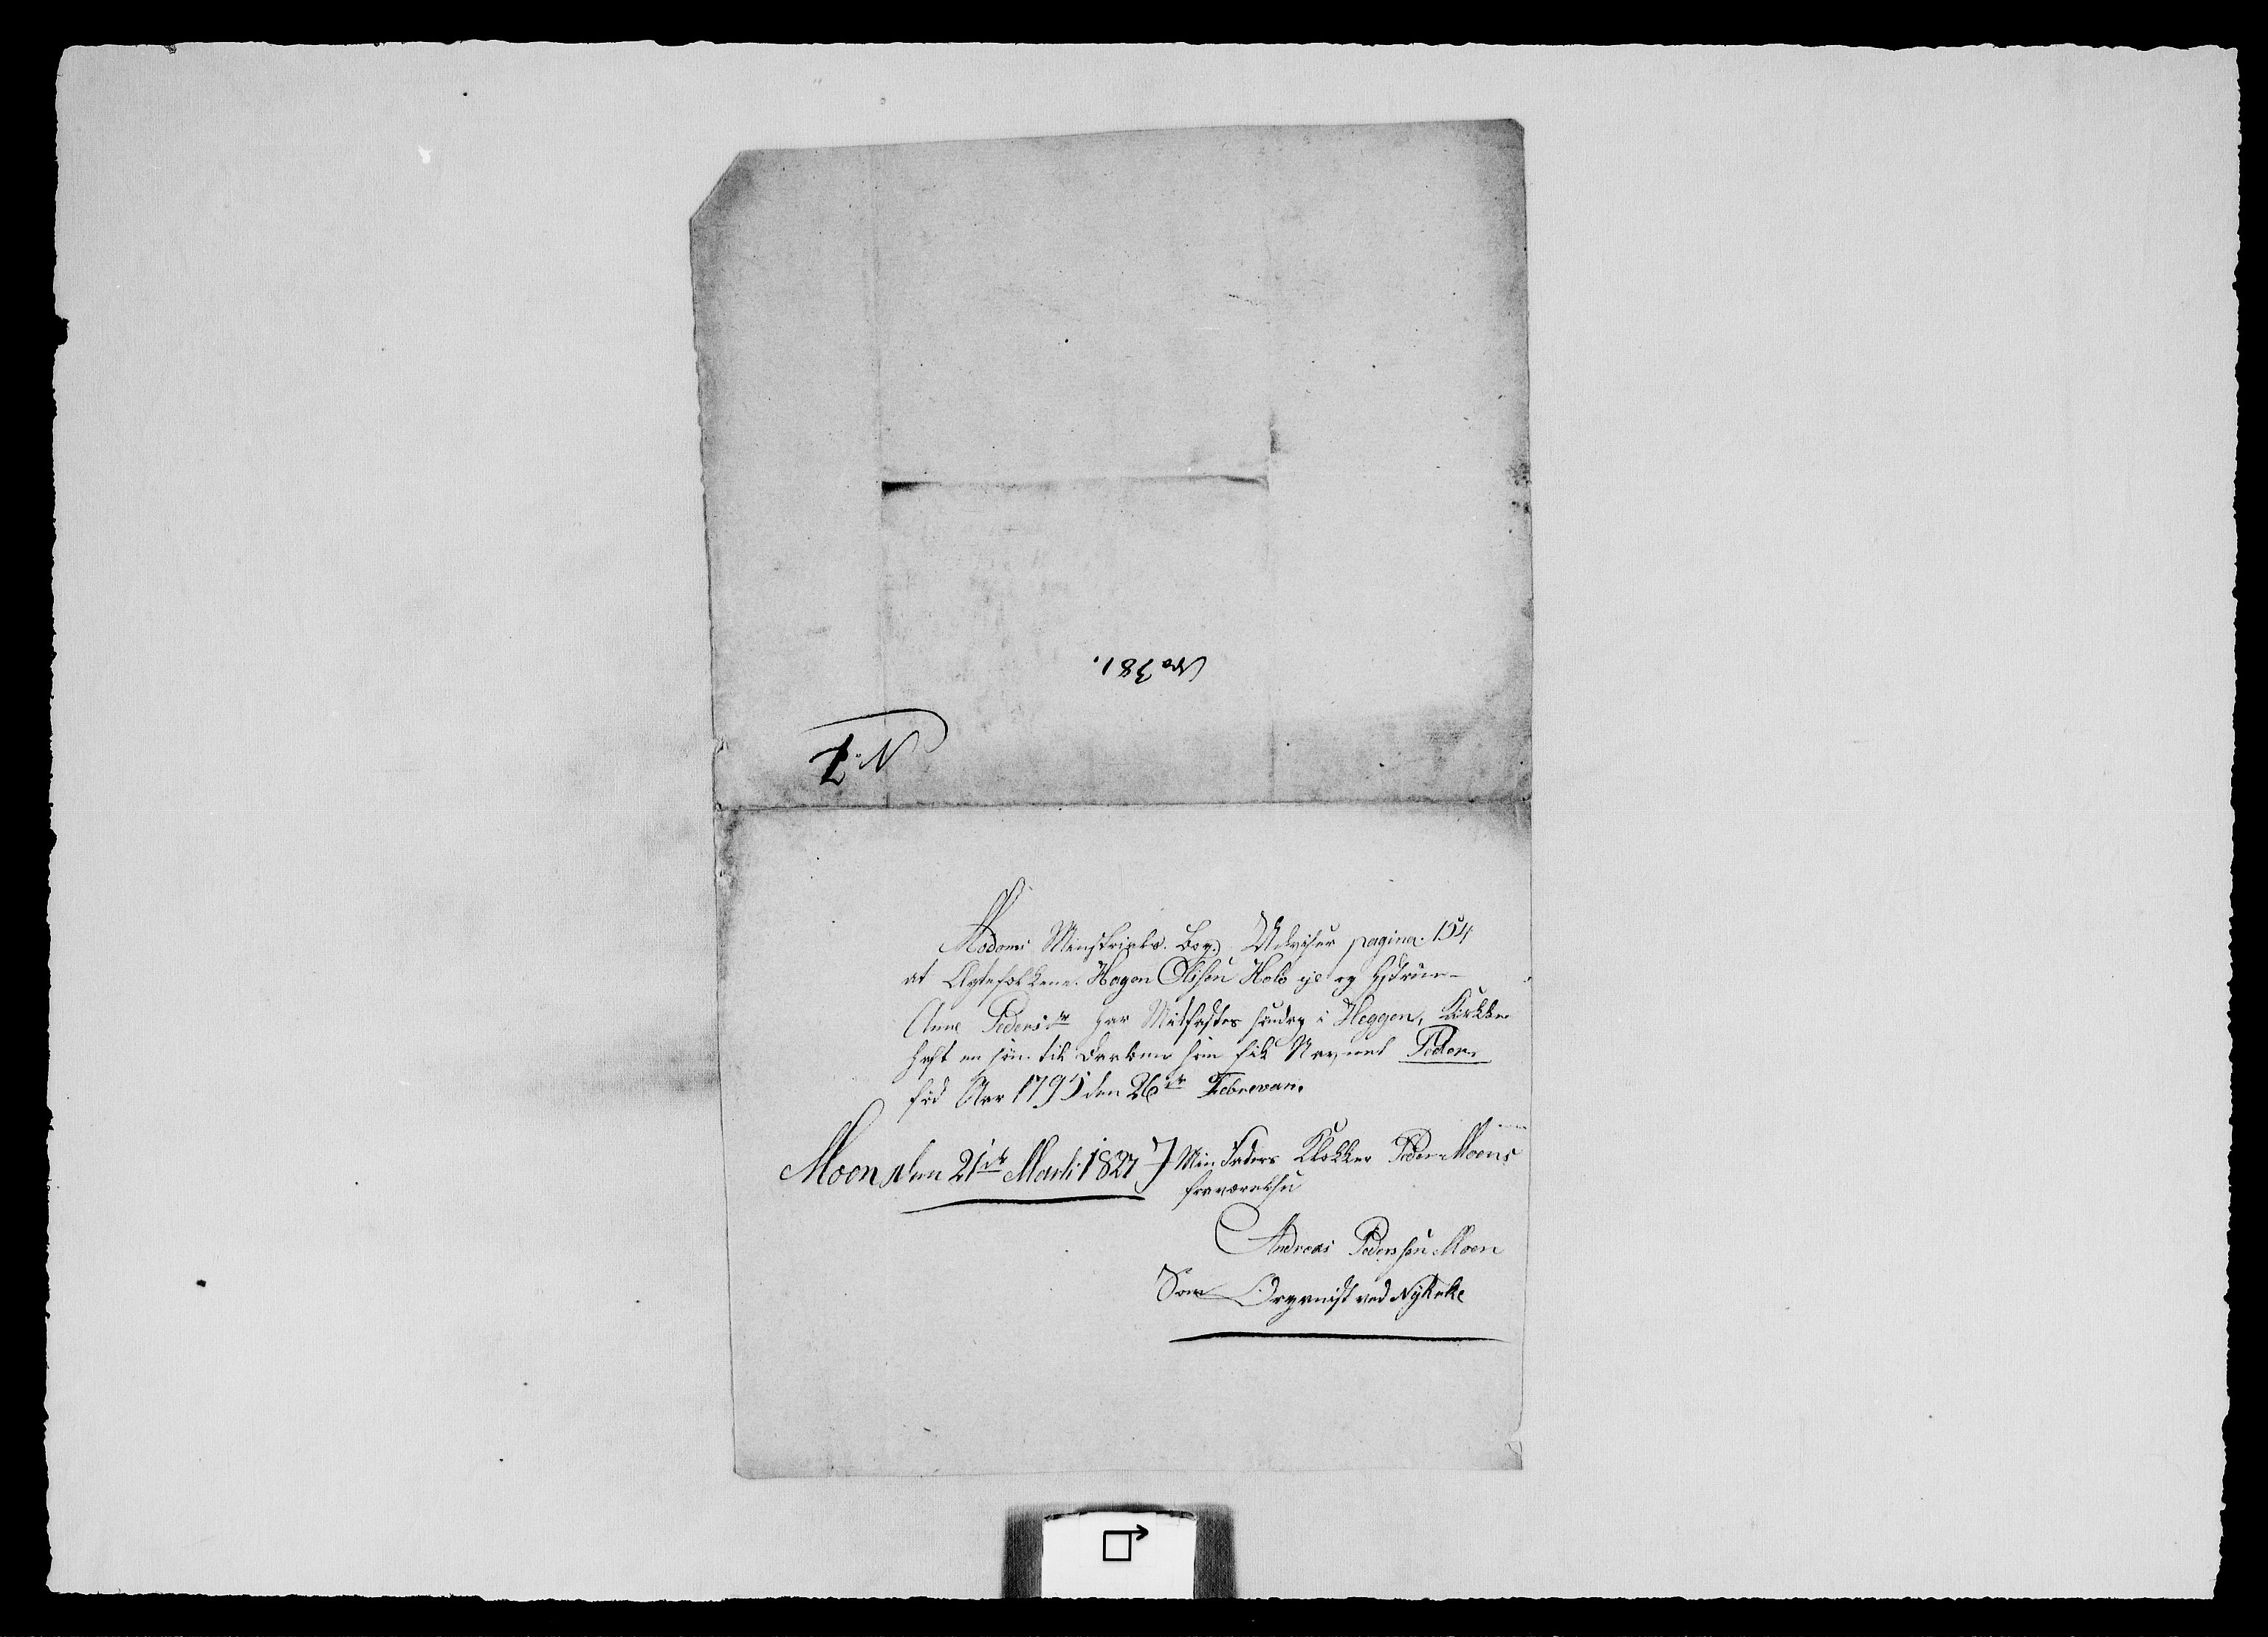 No 381.
N. 7
Modoms Ministrials. Bog. Udviser pagina. 154
at Egtefolkene. Hagen Olsen Holo og Hustrue
Anne Pedersdr har Midfastes Sundag i Heggen, Kirkke
haft en søn til Daaben som fik Navnet Peder.
fød Aar 1795 den 26de Februvari.
Moen den 21de Marti 1827 I Min Faders Klokker Peder Moens
fraværelse
Andreas Pedersen Moen
Som Organist ved Nykirke